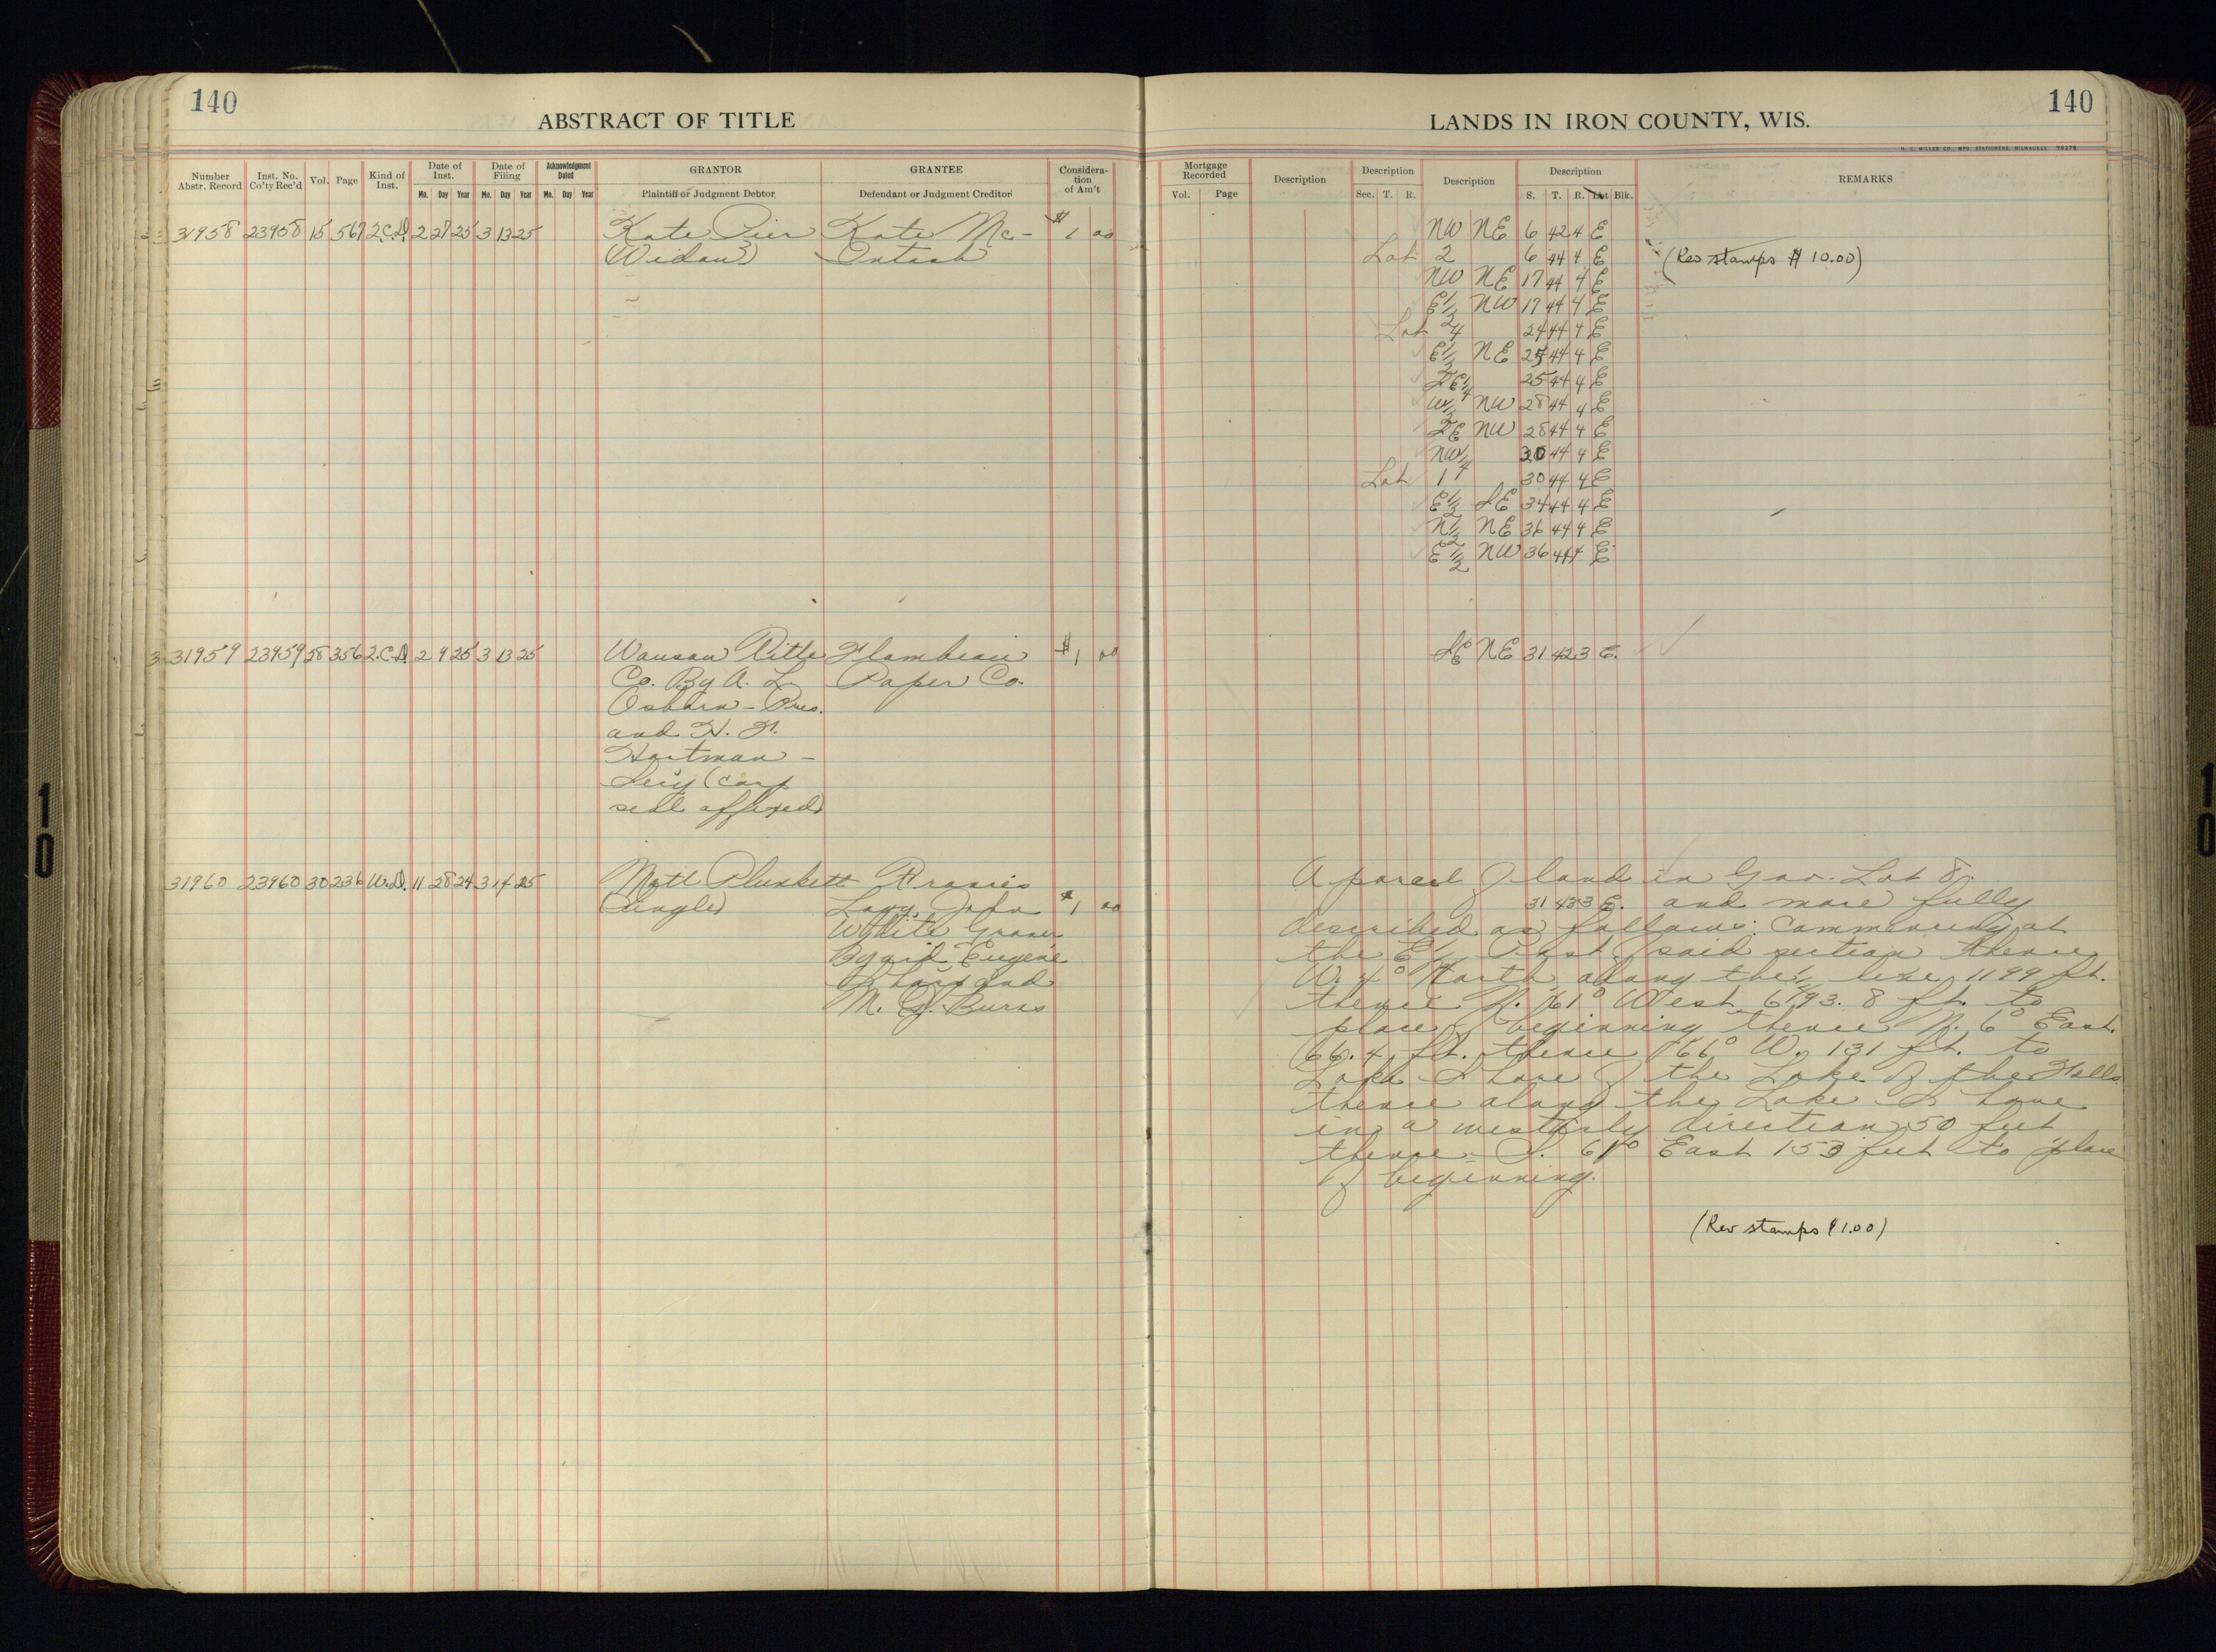 140
ABSTRACT OF TITLE
Number Abstr. Record
Inst. No. Co'ty Rec'd
Vol.
Page
Kind of Inst.
Date of Inst.
Mo. Day Year
Date of Filing
Mo. Day Year
Acknowledgment Dated
Mo. Day Year
GRANTOR
Plaintiff or Judgment Debtor
GRANTEE
Defendant or Judgment Creditor
Considera-
tion
of Am't
31958 23958 15 567 2.C.D. 2 27 25 3 13 25 Kate Pier Kate Mc- $1 00
(Widow) Intosh
31959 23959 28 356 2.C.D. 2 9 25 3 13 25 Wausau Title Flambeau $1 00
Co. By A. L. Paper Co.
Osborn - Pres.
and H. F.
Hartman -
Secy (corp
seal affixed)
31960 23960 30 236 W.D. 11 28 24 3 14 25 Matt Plunkett
(single) John $1 00
White
Eugene
and
M. J. Burns
140
LANDS IN IRON COUNTY, WIS.
H. C. MILLER CO., MFG. STATIONERS, MILWAUKEE
Mortgage Recorded
Vol. Page
Description
Description
Sec. T. R.
Description
Description
S. T. R. Lot Blk.
REMARKS
NW NE 6 42 4 E
Lot 2 6 44 4 E (Rev stamps $10.00)
NW NE 17 44 4 E
E½ NW 17 44 4 E
Lot 4 24 44 4 E
E½ NE 25 44 4 E
SE¼ 25 44 4 E
W½ NW 28 44 4 E
SE NW 28 44 4 E
NW¼ 30 44 4 E
Lot 1 30 44 4 E
E½ SE 34 44 4 E
N½ NE 36 44 4 E
E½ NW 36 44 4 E
SE NE 31 42 3 E.
A parcel of land in Gov. Lot 8.
31 43 3 E. and more fully
described as follows: Commencing at
the E¼ Post of said section thence
W. 4° North along the ¼ line 1199 ft.
thence N. 61° West 693.8 ft. to
place of beginning thence N. 6° East.
66.4 ft. thence 66° W. 131 ft. to
Lake Shore of the Lake of the Falls
thence along the Lake Shore
in a westerly direction 50 feet
thence S. 61° East 153 feet to place
of beginning.
(Rev stamps $1.00)
10
10